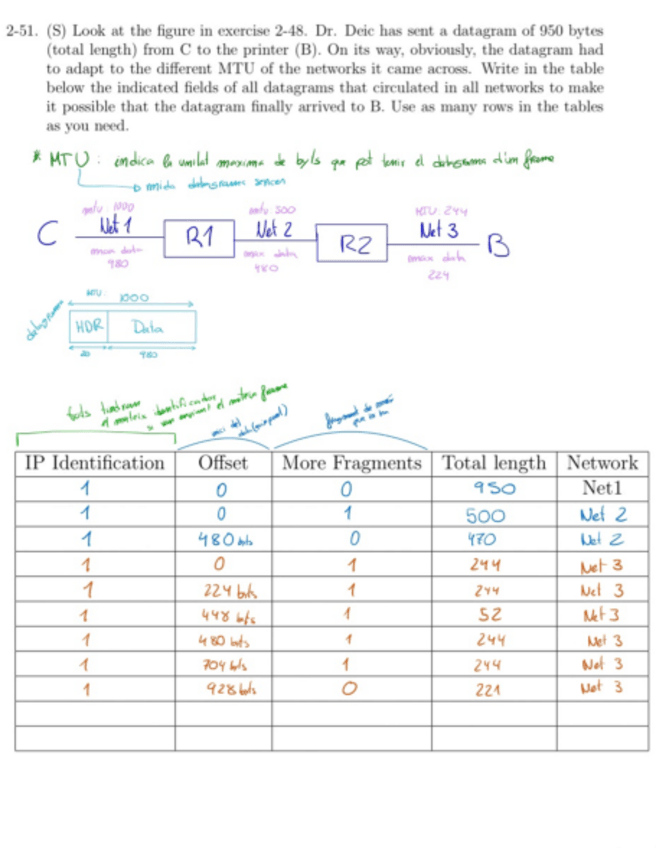 2-51. (S) Look at the figure in exercise 2-48. Dr. Deic has sent a datagram of 950 bytes
(total length) from C to the printer (B). On its way, obviously, the datagram had
to adapt to the different MTU of the networks it came across. Write in the table
below the indicated fields of all datagrams that circulated in all networks to make
it possible that the datagram finally arrived to B. Use as many rows in the tables
as you need.
* MTU: indica la unitat maxima de byts que pot tenir el datagrama d'un frame
mida datagrames sencer
mtu 1000 mtu 500 MTU: 244
C Net 1 R1 Net 2 R2 Net 3 B
max data 980 max data 480 max data 224
MTU: 1000
datagrama HDR Data
20 980
tots tindran
el mateix identificador
el mateix frame
IP Identification Offset More Fragments Total length Network
1 0 0 950 Net1
1 0 1 500 Net 2
1 480 bits 0 470 Net 2
1 0 1 244 Net 3
1 224 bits 1 244 Net 3
1 448 bits 1 52 Net 3
1 480 bits 1 244 Net 3
1 704 bits 1 244 Net 3
1 928 bits 0 221 Net 3